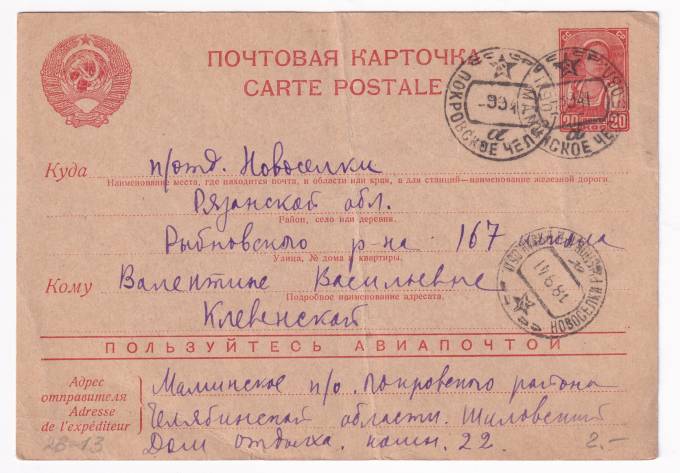 ПОЧТОВАЯ КАРТОЧКА
CARTE POSTALE
20 20
ПОКРОВСКОЕ ЧЕЛ
НОВОСЕЛКИ
Куда п/отд. Новоселки
Наименование места, где находится почта, и области или края, а для станций—наименование железной дороги.
Рязанской обл.
Район, село или деревня.
Рыбновского р-на 167
Улица, № дома и квартиры.
Кому Валентине Васильевне
Подробное наименование адресата.
Клевенской
ПОЛЬЗУЙТЕСЬ АВИАПОЧТОЙ
Адрес отправителя
Adresse de l'expéditeur
Маминское п/о. Покровского района
Челябинской области. Шиловский
Дом отдыха. комн. 22.
2В-13
2.-